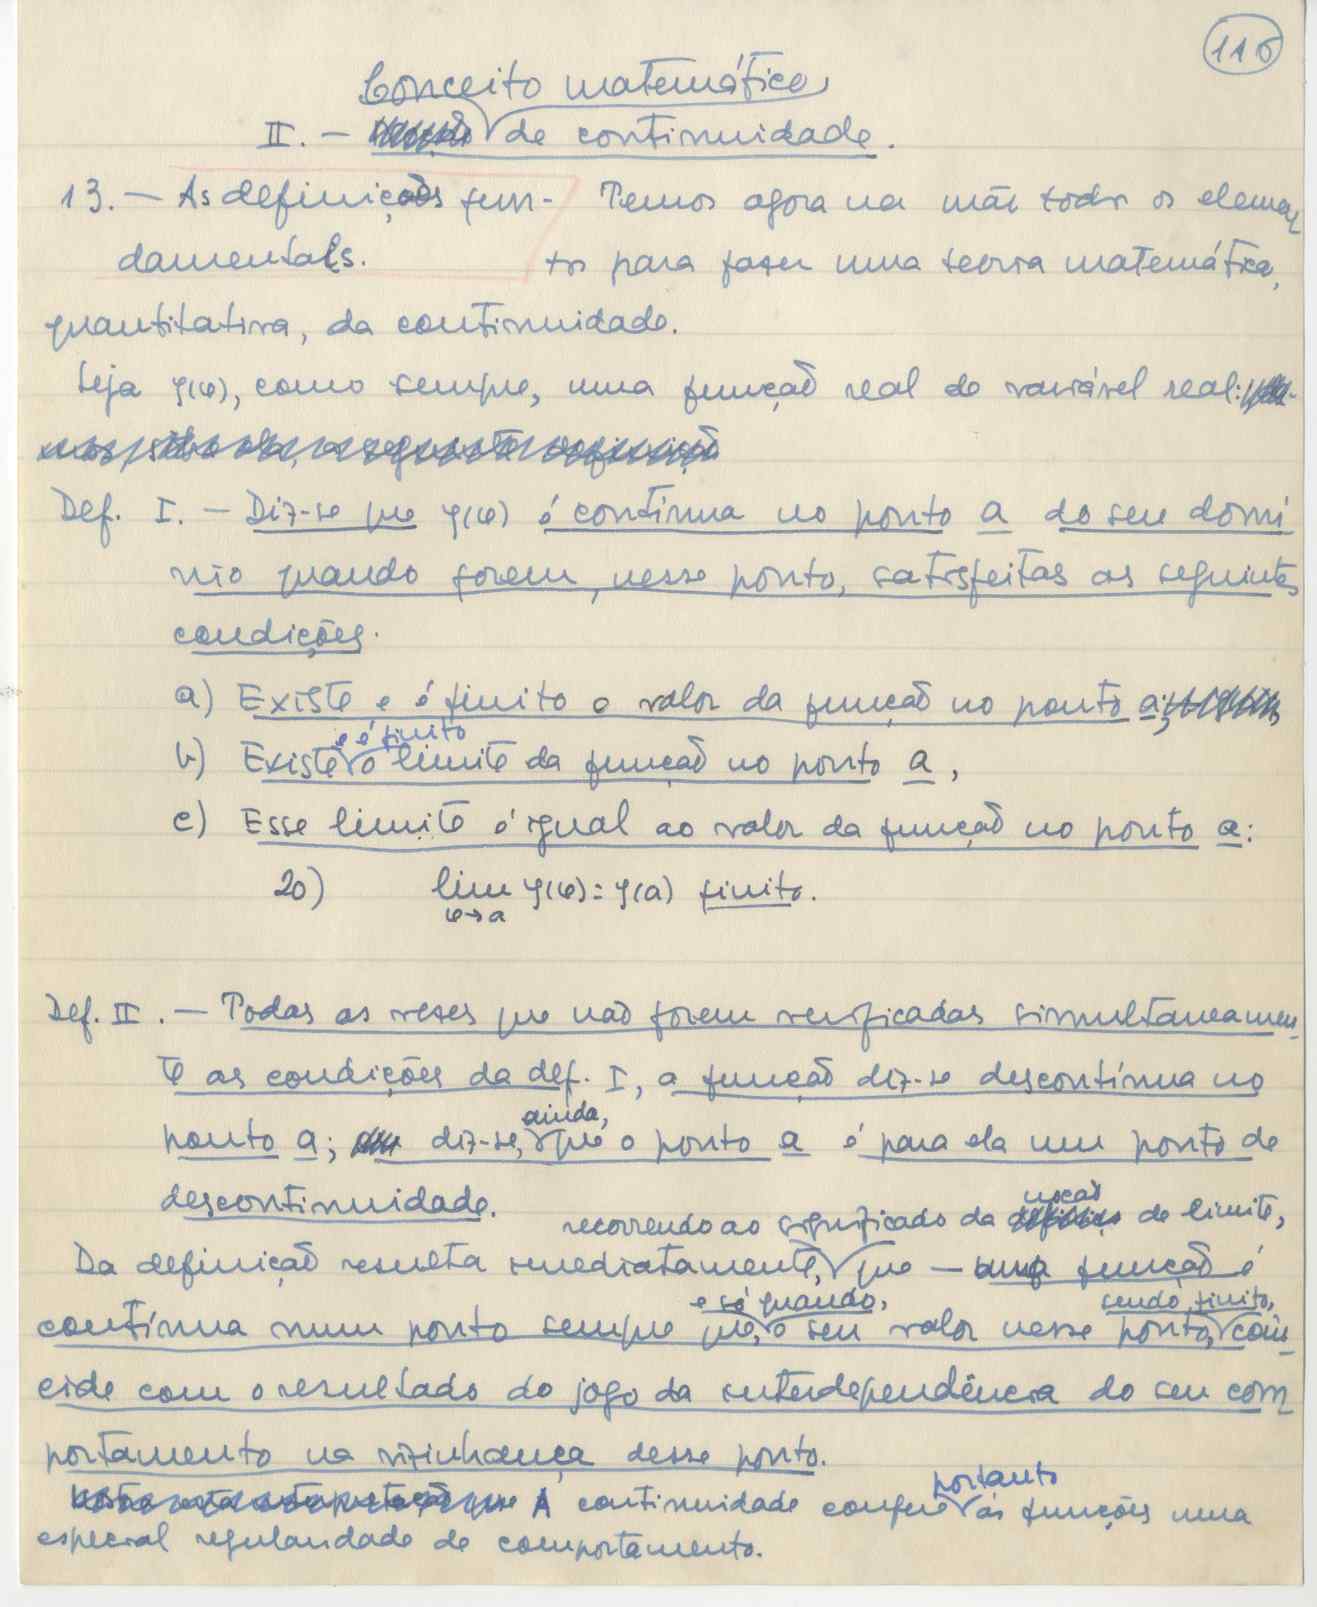 116
Conceito matemático
II. — de continuidade.
13. — As definições fun- Temos agora na mão todos os elemen
damentais. tos para fazer uma teoria matemática,
quantitativa, da continuidade.
Seja y(x), como sempre, uma função real de variável real:
Def. I. — Diz-se que y(x) é contínua no ponto a do seu domí
nio quando forem, nesse ponto, satisfeitas as seguintes
condições.
a) Existe e é finito o valor da função no ponto a;
e é finito
b) Existe o limite da função no ponto a,
c) Esse limite é igual ao valor da função no ponto a:
20) lim y(x) = y(a) finito.
x→a
Def. II. — Todas as vezes que não forem verificadas simultaneamen
te as condições da def. I, a função diz-se descontínua no
ainda,
ponto a; diz-se, que o ponto a é para ela um ponto de
descontinuidade.
noção
recorrendo ao significado da de limite,
Da definição resulta imediatamente, que — uma função é
e só quando, sendo finito,
contínua num ponto sempre que, o seu valor nesse ponto, coin
cide com o resultado do jogo da interdependência do seu com
portamento na vizinhança desse ponto.
portanto
A continuidade confere às funções uma
especial regularidade de comportamento.